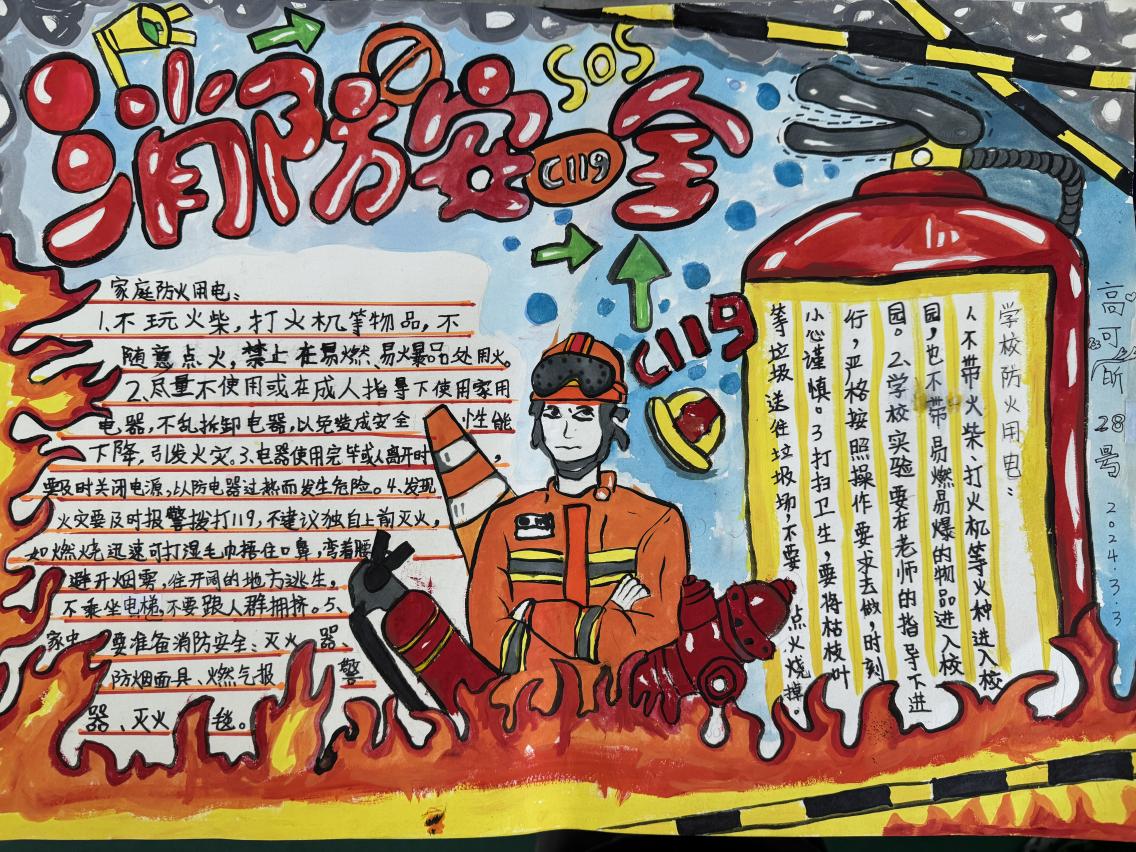 消防安全
SOS
C119
C119
家庭防火用电:
1.不玩火柴,打火机等物品,不
随意点火,禁止在易燃、易火暴品处用火。
2.尽量不使用或在成人指导下使用家用
电器,不乱拆卸电器,以免造成安全 性能
下降,引发火灾。3.电器使用完毕或人离开时,
要及时关闭电源,以防电器过热而发生危险。4.发现
火灾要及时报警拨打119,不建议独自上前灭火,
如燃火烧迅速可打湿毛巾捂住口鼻,弯着腰
避开烟雾,往开阔的地方逃生。
不乘坐电梯,不要跟人群拥挤。5、
家中 要准备消防安全、灭火 器
防烟面具、燃气报 警
器、灭火 毯。
学校防火用电:
1.不带火柴、打火机等火种进入校
园,也不带易燃易爆的物品进入校
园。2.学校实验要在老师的指导下进
行,严格按照操作要求去做,时刻
小心谨慎。3打扫卫生,要将枯枝叶
等垃圾送往垃圾场,不要 点火烧掉。
高可
28号
2024.3.3